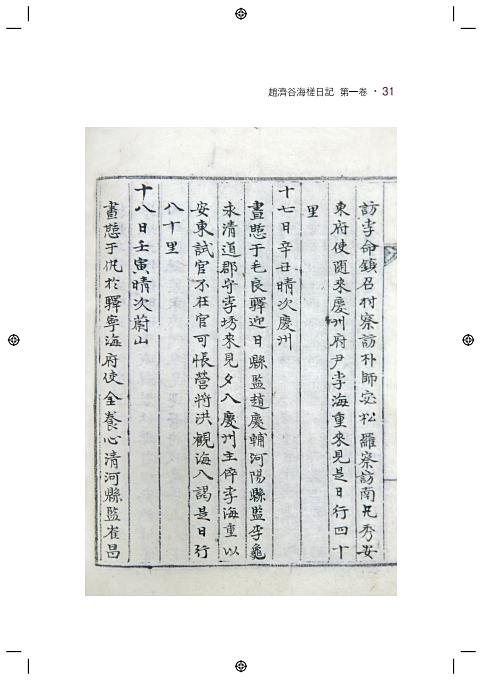 趙濟谷海槎日記 第一卷 · 31
訪李命鎭召村察訪朴師宓松羅察訪南凡秀安
東府使隨來慶州府尹李海重來見是日行四十
里
十七日辛丑晴次慶州
晝憩于毛良驛迎日縣監趙慶輔河陽縣監李龜
永淸道郡守李琇來見夕入慶州主倅李海重以
安東試官不在官可悵營將洪觀海入謁是日行
八十里
十八日壬寅晴次蔚山
晝憩于仇於驛寧海府使全養心淸河縣監崔昌